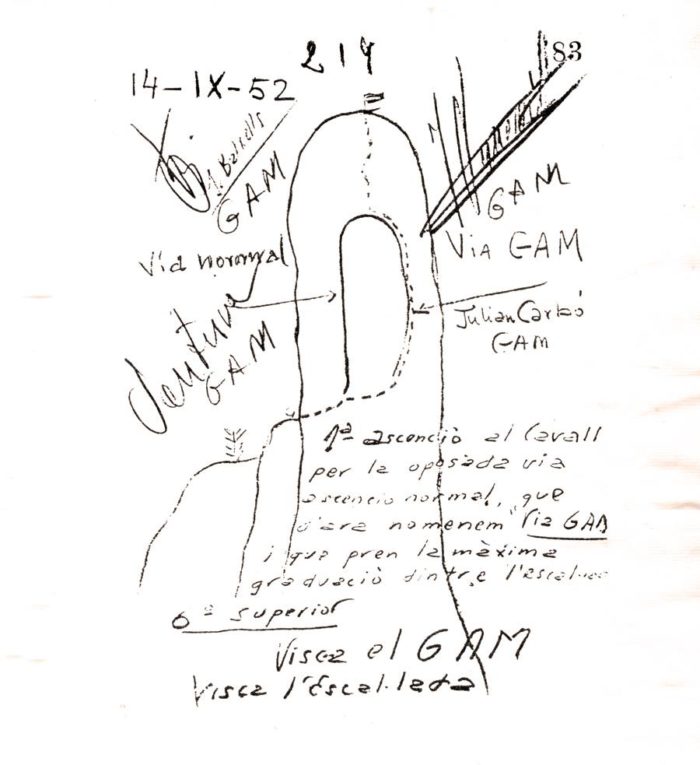 219
83
14-IX-52
J. Balcells
GAM
GAM
Via GAM
Via normal
Julian Carbó
GAM
Ventura
GAM
1ª ascenció al Cavall
per la oposada via
ascencio normal, que
d'ara nomenem Via GAM
i que pren la màxima
graduaciò dintre l'escalada
6ª superior
Visca el GAM
Visca l'Escal.lada